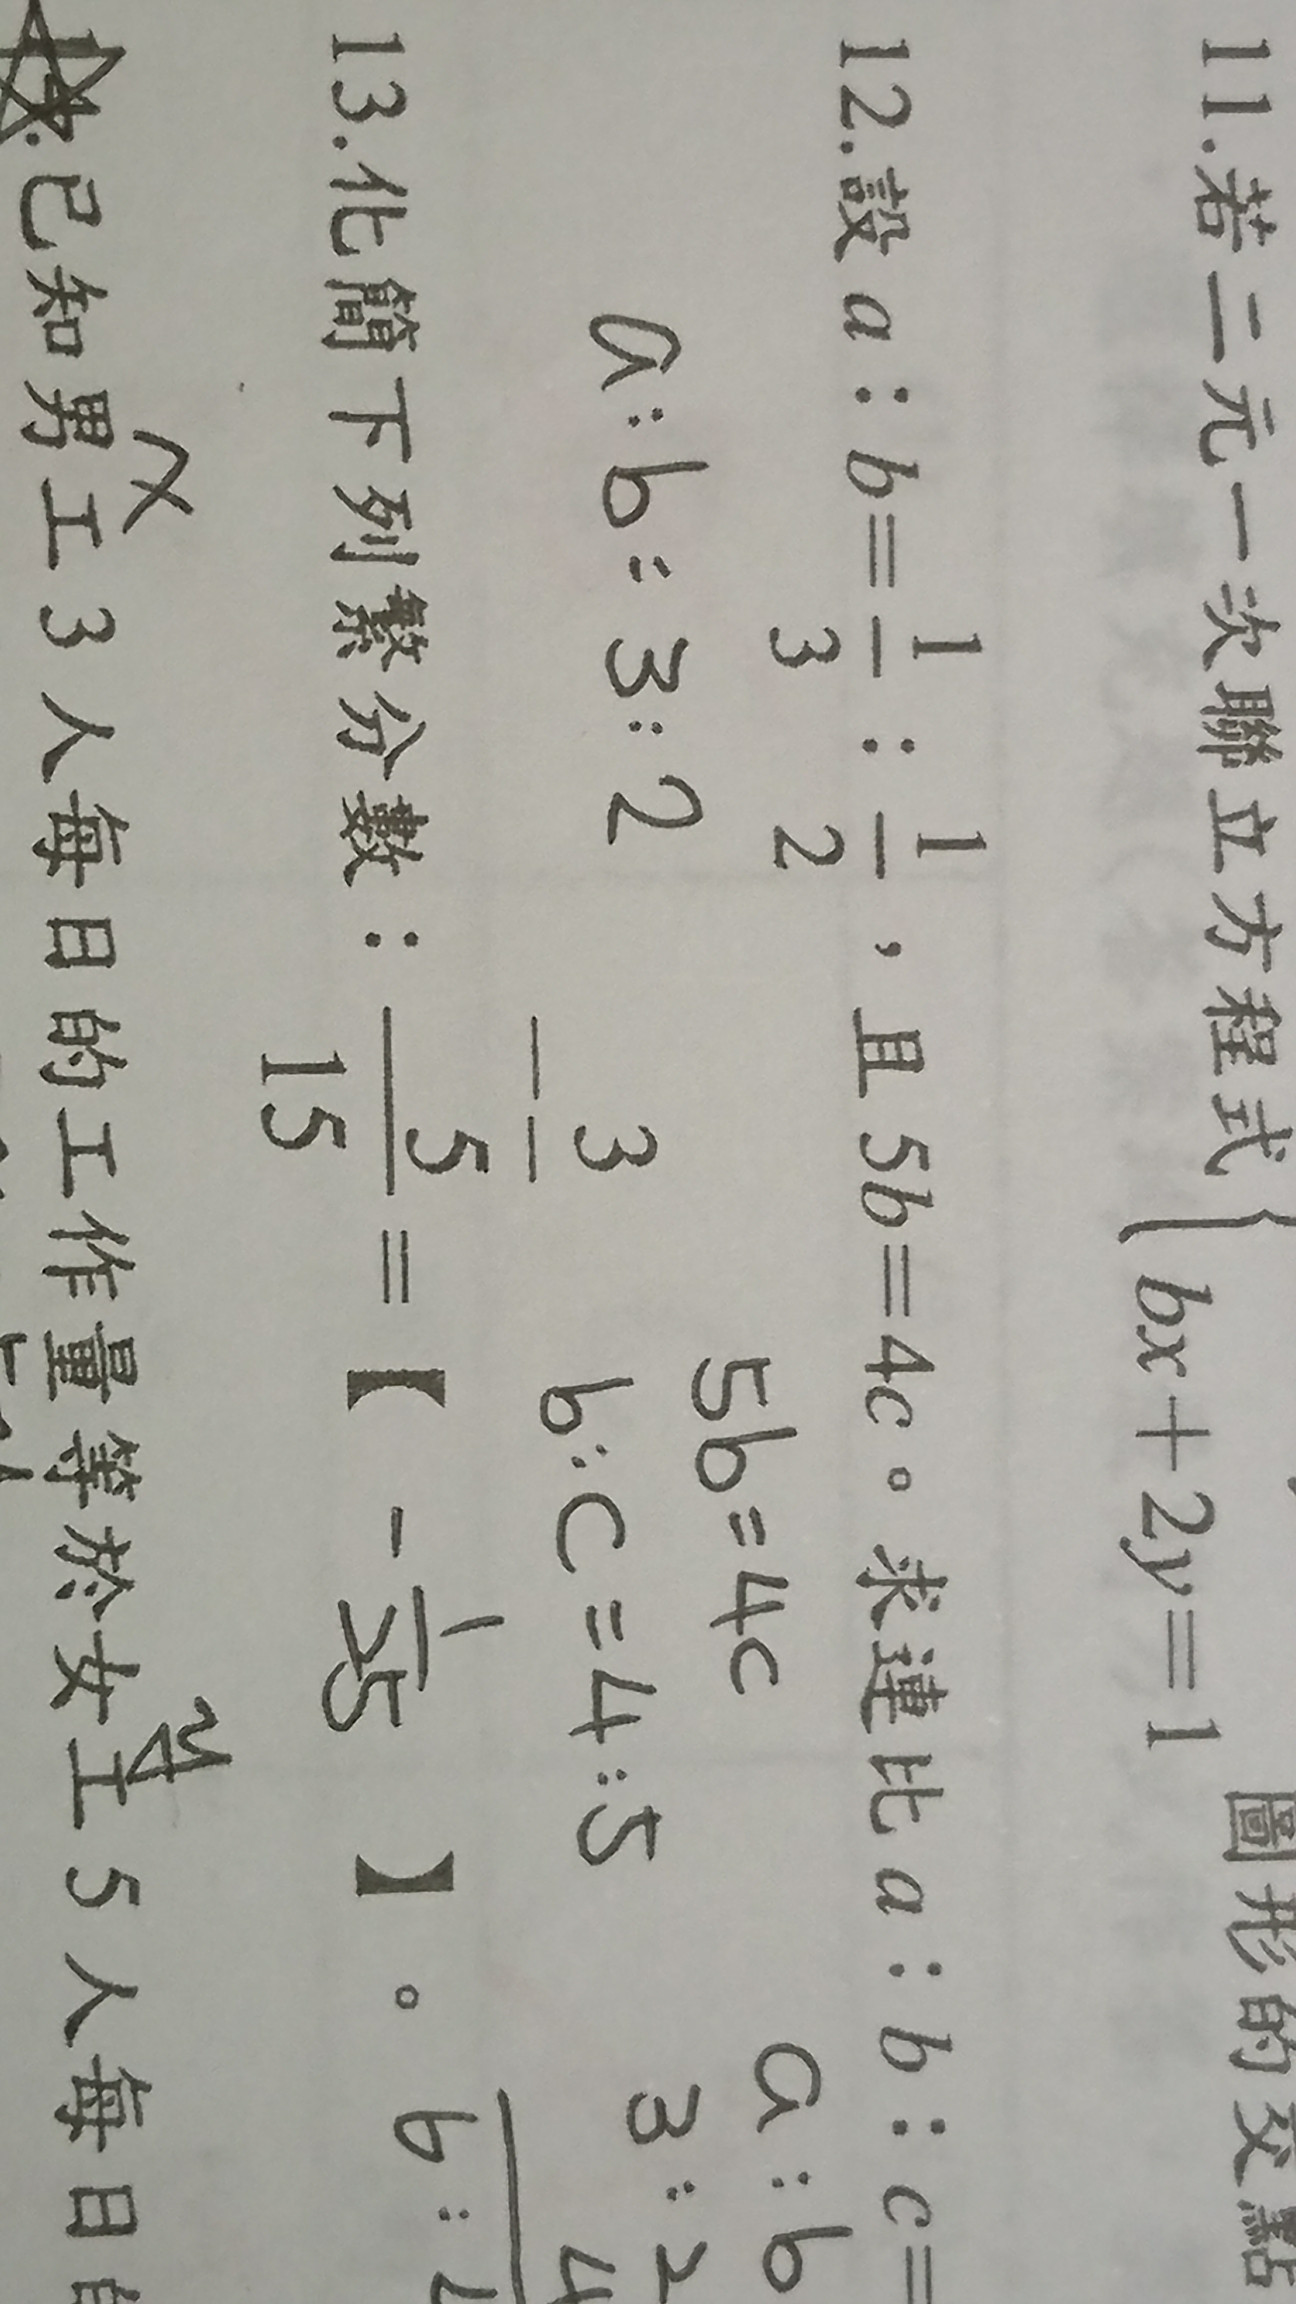 11.若二元一次聯立方程式{bx+2y=1 圖形的交點
12.設 a：b=1/3：1/2，且 5b=4c。求連比 a：b：c=
5b=4c a:b
a:b=3:2 b:c=4:5 3:2
4
13.化簡下列繁分數：(-3/5)/15=【 -1/25 】。 6:4
x y
14.已知男工3人每日的工作量等於女工5人每日的